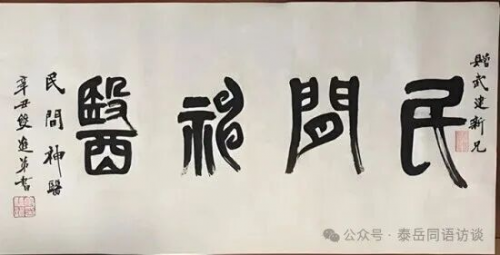 赠武建新兄
民間神醫
民間神醫
辛丑雙進书
公众号 · 泰岳同语访谈